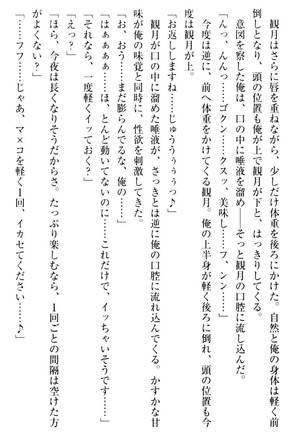 観月はさらに唇を重ねながら、少しだけ体重を後ろにかけた。自然と俺の身体は軽く前
倒しとなり、頭の位置も俺が上で観月が下と、はっきりしてくる。
意図を察した俺は、口の中に唾液を溜め――そっと観月の口腔に流し込んだ。
「っ、んんっ……ゴクン……クスッ、美味し……フ、ンン……」
今度は逆に、前へ体重をかけてくる観月。俺の上半身が軽く後ろに倒れ、頭の位置も今
度は観月が上。
「お返ししますね……じゅうぅぅぅっ♪」
観月が口の中に溜めた唾液が、さっきとは逆に俺の口腔に流れ込んでくる。かすかな甘
味が俺の味覚と同時に、性欲を刺激してきた。
「お、おう……まだ膨らんでるな、俺の……」
「はぁぁぁ……ほ、とんど動いてないのに……これだけで、イッちゃいそうです……」
「それなら、一度軽くイッておく？」
「えっ？」
「ほら、今夜は長くなりそうだからさ。たっぷり楽しむなら、1回ごとの間隔は空けた方
がよくない？」
「……フフ……じゃあ、マ×コを軽く1回、イカセてください……♪」